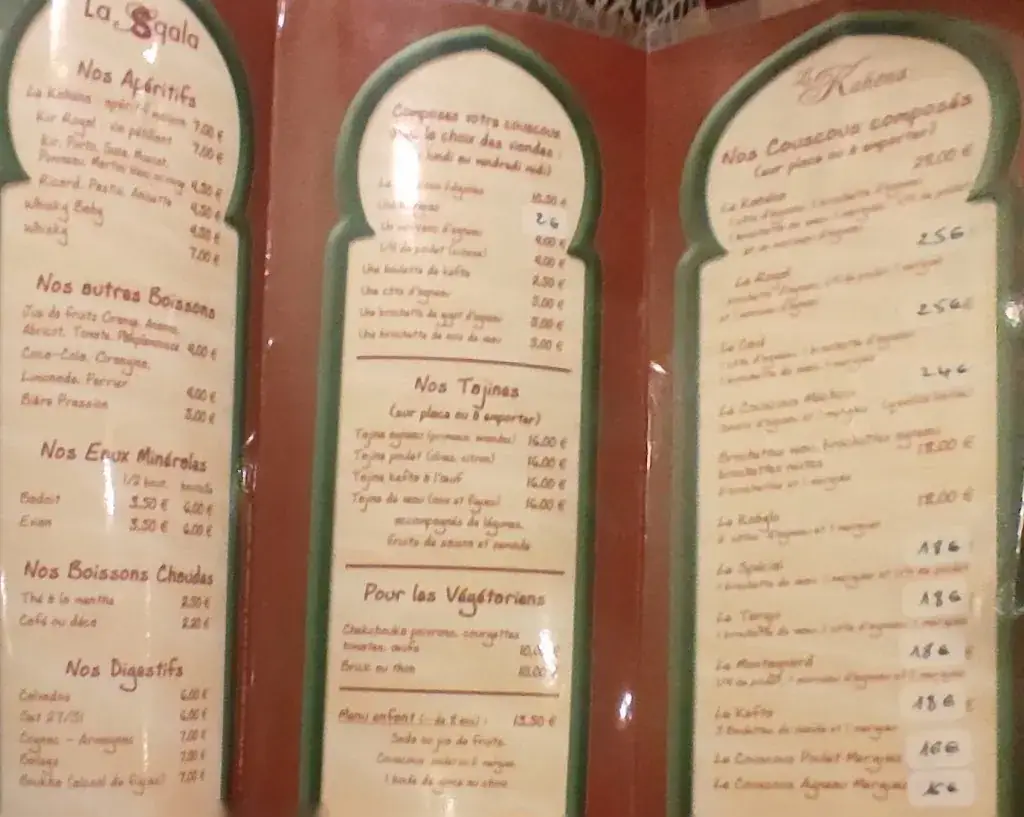 La Sqala
Nos Apéritifs
La Kahena apéritif maison 7,00 €
Kir Royal, vin pétillant 7,00 €
Kir, Porto, Suze, Muscat,
Pommeau, Martini blanc ou rouge 4,50 €
Ricard, Pastis, Anisette 4,50 €
Whisky Baby 4,50 €
Whisky 7,00 €
Nos autres Boissons
Jus de fruits Orange, Ananas,
Abricot, Tomate, Pamplemousse 4,00 €
Coca-Cola, Orangina,
Limonade, Perrier 4,00 €
Bière Pression 3,00 €
Nos Eaux Minérales
1/2 bout. bouteille
Badoit 3,50 € 6,00 €
Evian 3,50 € 6,00 €
Nos Boissons Chaudes
Thé à la menthe 2,50 €
Café ou déca 2,20 €
Nos Digestifs
Calvados 6,00 €
Get 27/31 6,00 €
Cognac - Armagnac 7,00 €
Baileys 7,00 €
Boukha (alcool de figues) 7,00 €
Composez votre couscous
avec le choix des viandes :
lundi au vendredi midi)
Le couscous légumes 10,50 €
Une merguez 2 €
Un morceau d'agneau 9,00 €
1/4 de poulet 4,00 €
Une boulette de kefta 2,50 €
Une côte d'agneau 3,00 €
Une brochette de gigot d'agneau 5,00 €
Une brochette de noix de veau 5,00 €
Nos Tajines
(sur place ou à emporter)
Tajine agneau (pruneaux amandes) 16,00 €
Tajine poulet (olives, citron) 16,00 €
Tajine kefta à l'œuf 16,00 €
Tajine de veau (noix et figues) 16,00 €
accompagnés de légumes,
fruits de saison et semoule
Pour les Végétariens
Chakchouka poivrons, courgettes
tomates, œufs 10,00 €
Brick au thon 10,00 €
Menu enfant ( de 8 ans) : 13,50 €
Soda ou jus de fruits.
Couscous
1 boule de glace au choix
La Kahena
Nos Couscous composés
(sur place ou à emporter)
La Kahena 28,00 €
Le Royal 25€
Le Caïd 25€
Le Couscous Méchoui 24€
Brochettes veau, brochettes agneau
brochettes mixtes 18,00 €
2 brochettes et 1 merguez
Le Kabyle 18,00 €
2 côtes d'agneau et 1 merguez
Le Spécial 18€
1 brochette de veau 1 merguez et 1/4 de poulet
Le Targui 18€
1 brochette de veau 1 côte d'agneau 1 merguez
Le Montagnard 18€
1/4 de poulet 1 morceau d'agneau et 1 merguez
Le Kefta 18€
3 Boulettes de viande et 1 merguez
Le Couscous Poulet Merguez 16€
Le Couscous Agneau Merguez 16€